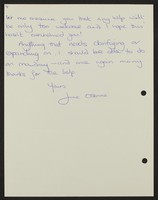 let me assure you that my help will
be only too welcome and I hope this
won't
you!
Anything that needs clarifying or
I should be able to do
on Monday — and once again many
thanks for the help.
Yours